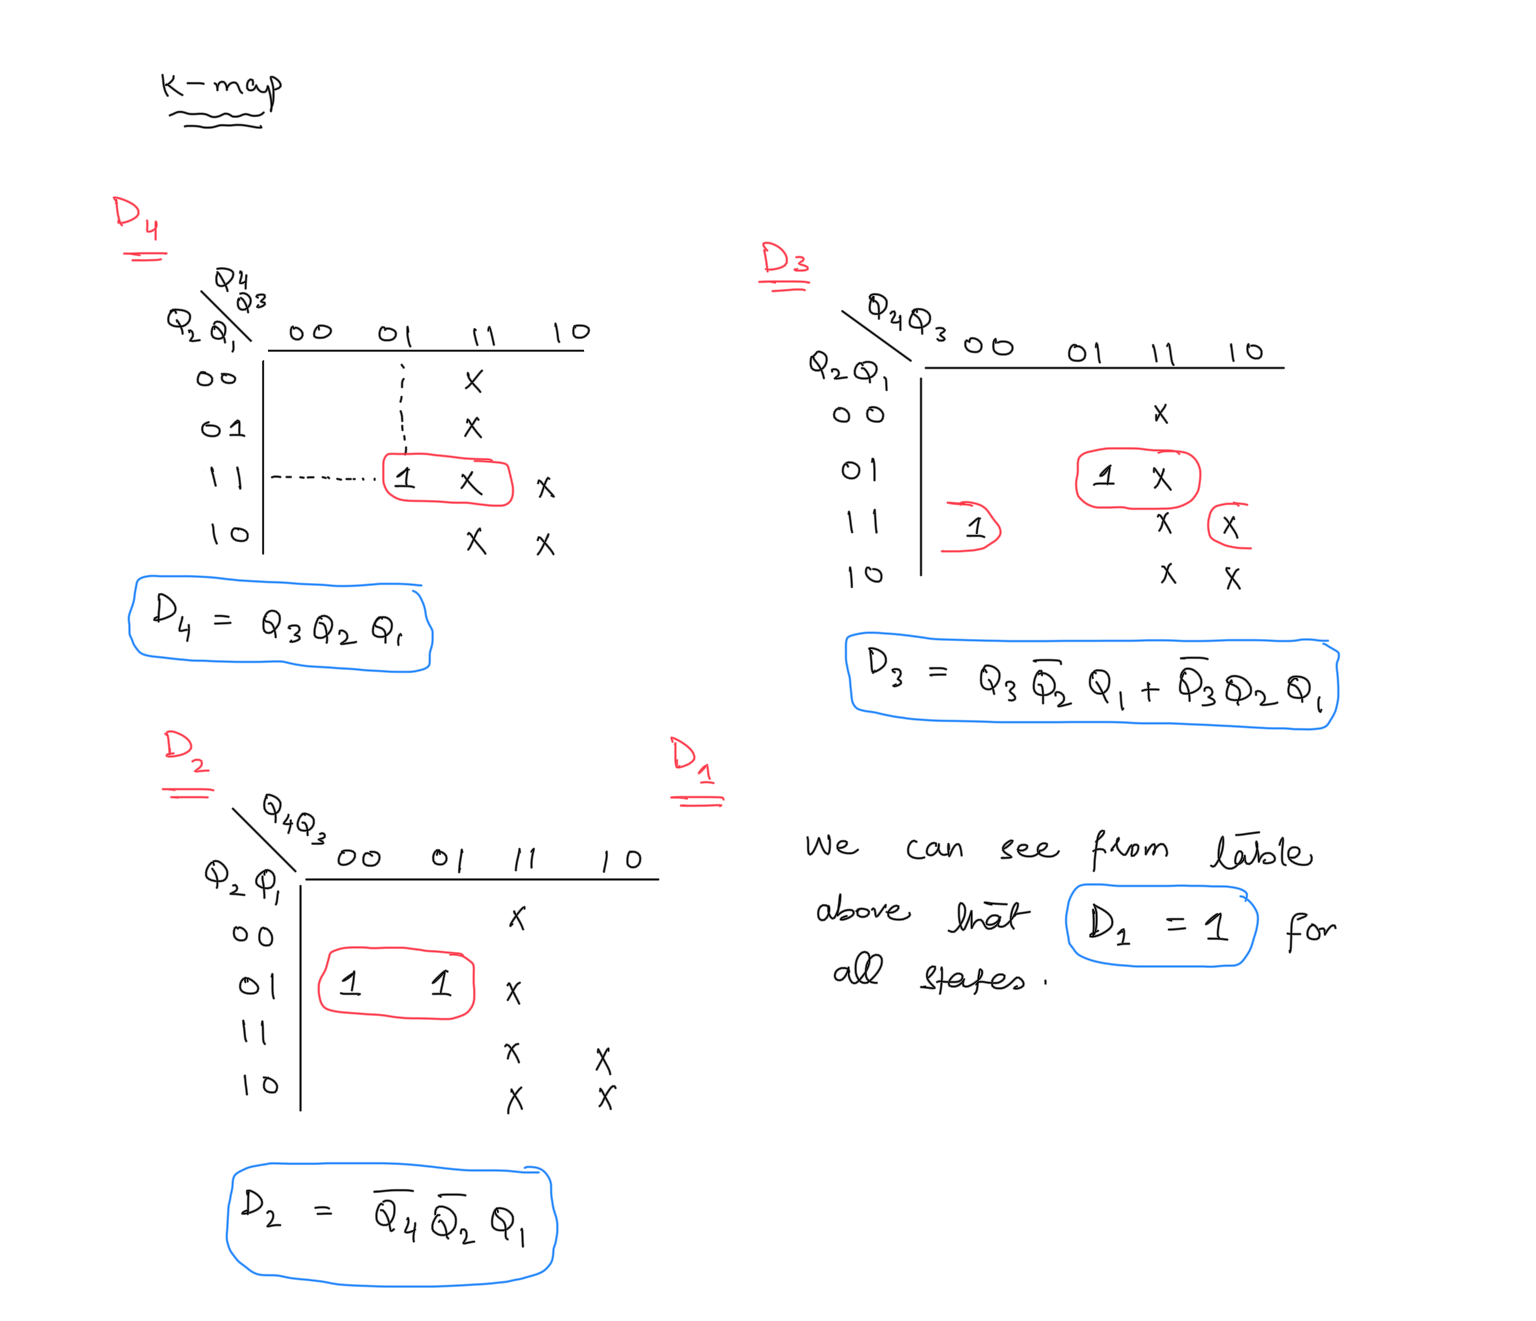 K-map
D4
Q4
Q3
Q2 Q1 00 01 11 10
00 X
01 X
11 1 X X
10 X X
D4 = Q3 Q2 Q1
D3
Q4Q3
Q2Q1 00 01 11 10
00 X
01 1 X
11 1 X X
10 X X
D3 = Q3 Q̅2 Q1 + Q̅3 Q2 Q1
D2
Q4Q3
Q2 Q1 00 01 11 10
00 X
01 1 1 X
11 X X
10 X X
D2 = Q̅4 Q̅2 Q1
D1
We can see from table
above that D1 = 1 for
all states.